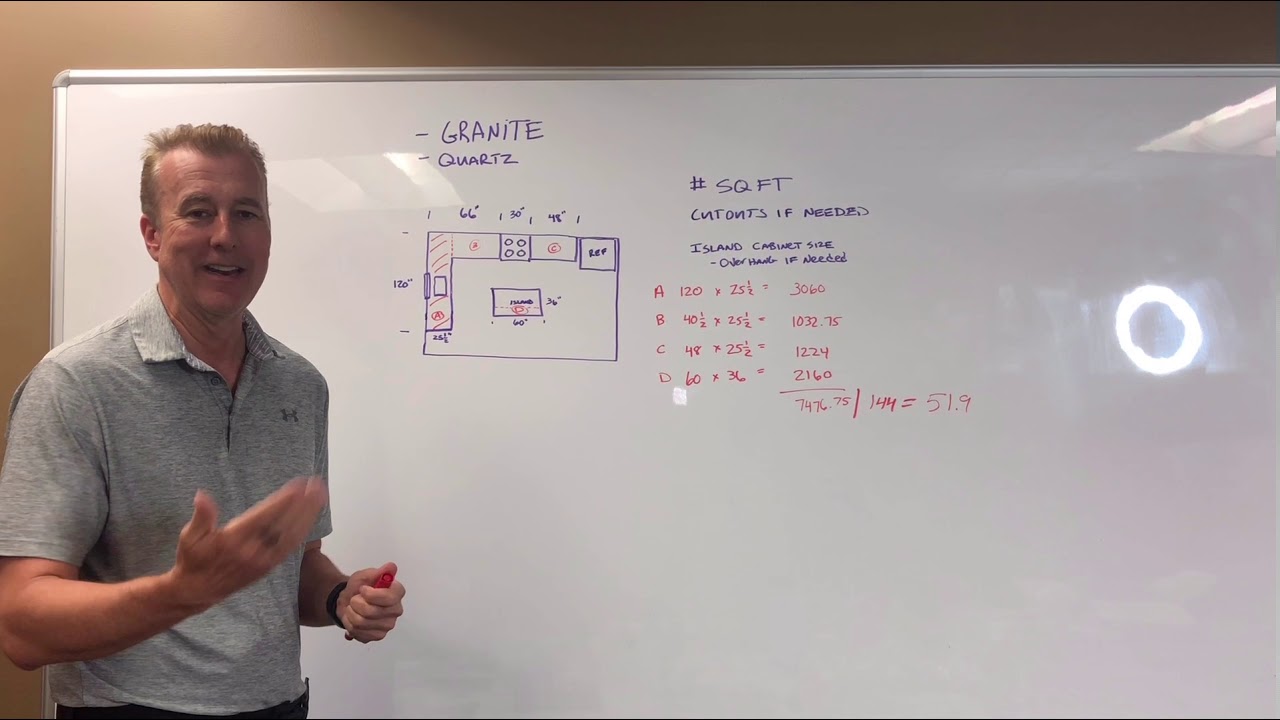 - GRANITE
- QUARTZ
# SQFT
CUTOUTS IF NEEDED
ISLAND CABINET SIZE
- OVERHANG IF NEEDED
66" 30" 48"
B C REF
120"
ISLAND 36"
D
A
60"
25 1/2"
A 120 x 25 1/2 = 3060
B 40 1/2 x 25 1/2 = 1032.75
C 48 x 25 1/2 = 1224
D 60 x 36 = 2160
7476.75 / 144 = 51.9